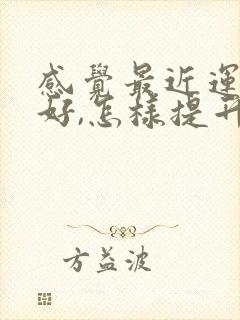 感覺最近運
好,怎樣提升
方益波